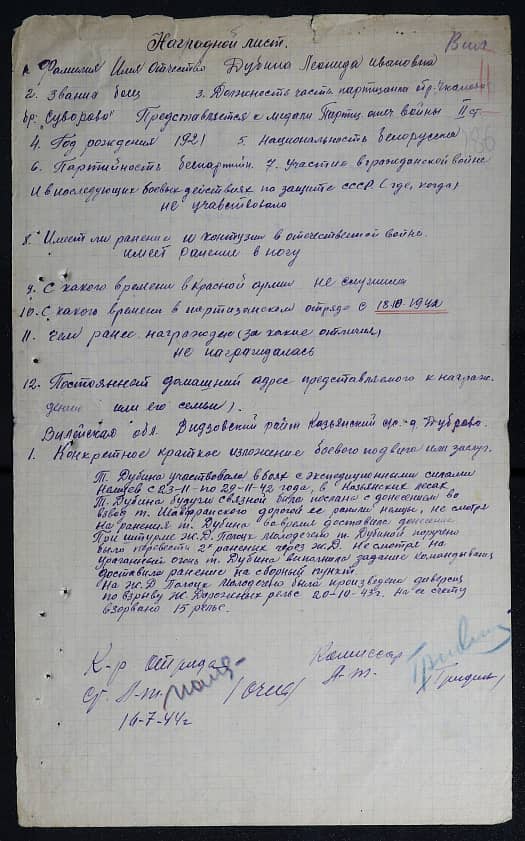 Наградной лист.
1. Фамилия Имя Отчество Дубина Леонида Ивановна
2. Звание боец 3. Должность часть партизанка отр. Чкалова
бр. "Суворова" Представляется к медали Партиз. отеч войны II ст.
4. Год рождения 1921 5. Национальность белорусска
6. Партийность беспартийн. 7. Участие в гражданской войне
и в последующих боевых действиях по защите СССР (где, когда)
не учавствовала
8. Имеет ли ранение и контузии в отечественной войне.
имеет ранение в ногу
9. С какого времени в Красной армии не служила
10. С какого времени в партизанском отряде с 18.10.1942
11. Чем ранее награжден (за какие отличия)
не награждалась
12. Постоянный домашний адрес представляемого к награж-
дению или его семьи).
Вилейская обл. Видзовский район Козьянский с/с. д. Дуброво.
1. Конкретное краткое изложение боевого подвига или заслуг.
Т. Дубина участвовала в боях с экспедиционными силами
немцев с 23-11 по 29-11-42 года, в Козьянских лесах
Т. Дубина будучи связной была послана с донесением во
взвод т. дорогой ее ранили немцы, не смотря
на ранения т. Дубина во время доставила донесение
При штурме Ж.Д. Полоцк Молодечно т. Дубиной поручено
было перевести 2х раненых через Ж.Д. Не смотря на
ураганный огонь т. Дубина выполнила задание командования
доставила раненых на сборный пункт.
На Ж.Д. Полоцк Молодечно была произведена диверсия
по взрыву Ж. Дорожных рельс 20-10-43г. На ее счету
взорвано 15 рельс.
К-р отряда Комиссар
ст. л-т л-т.
16-7-44г